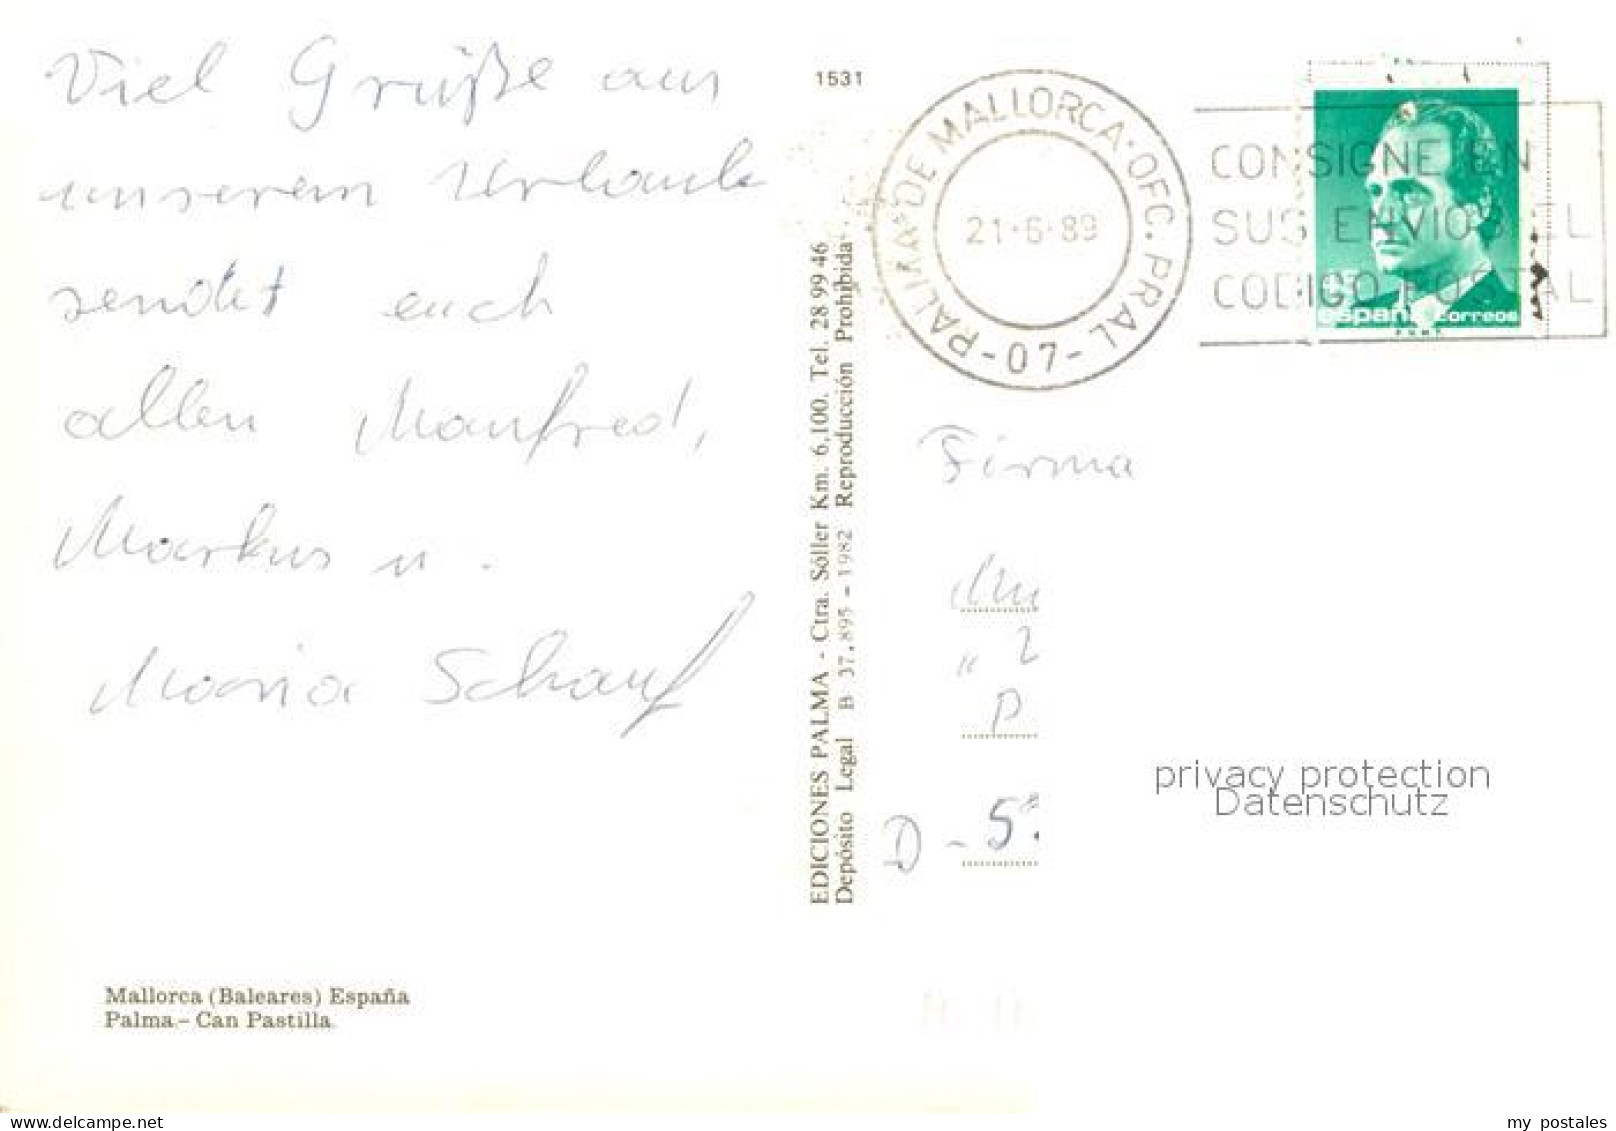 Viel Grüße aus
unserem Urlaub
sendet euch
allen Manfred,
Markus u.
Maria Schauf
Mallorca (Baleares) España
Palma - Can Pastilla
EDICIONES PALMA - Ctra. Sóller Km. 6,100. Tel. 28 99 46
Depósito Legal B 37.895 - 1982 Reproducción Prohibida
1531
PALMA DE MALLORCA·OFC. PRAL
21·6·89
-07-
CONSIGNE EN
SUS ENVIOS EL
CODIGO POSTAL
45
españa correos
Firma
Mu
„ 2
P
D - 5
privacy protection
Datenschutz
my postales